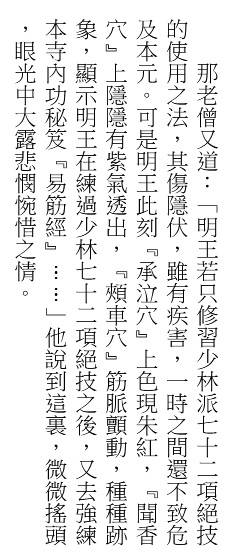 那老僧又道：「明王若只修習少林派七十二項絕技
的使用之法，其傷隱伏，雖有疾害，一時之間還不致危
及本元。可是明王此刻『承泣穴』上色現朱紅，『聞香
穴』上隱隱有紫氣透出，『頰車穴』筋脈顫動，種種跡
象，顯示明王在練過少林七十二項絕技之後，又去強練
本寺內功秘笈『易筋經』……」他說到這裏，微微搖頭
，眼光中大露悲憫惋惜之情。